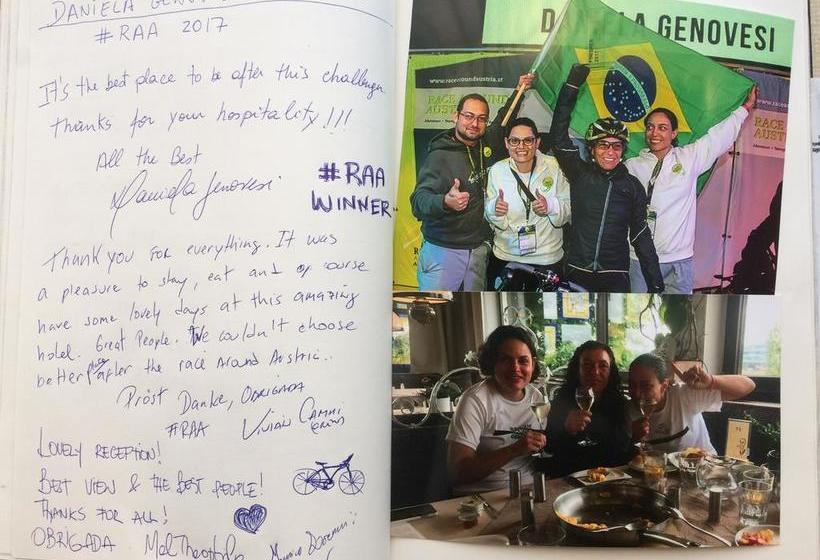 DANIELA
#RAA 2017
It's the best place to be after this challenge
thanks for your hospitality!!!
All the Best
Daniela Genovesi
#RAA
WINNER
Thank you for everything. It was
a pleasure to stay, eat and of course
have some lovely days at this amazing
hotel. Great People. We couldn't choose
better place after the race Around Austria..
Pröst Danke, OBRIGADA
#RAA Vivian
LOVELY RECEPTION!
BEST VIEW & THE BEST PEOPLE!
THANKS FOR ALL!
OBRIGADA
DANIELA GENOVESI
www.racearoundaustria.at
RACE AROUND
AUSTRIA
RACE
AUST